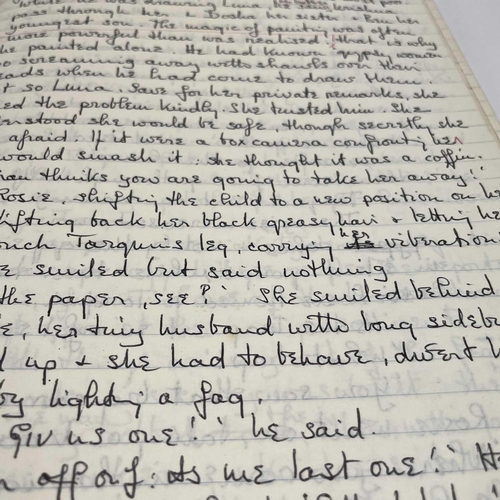 while he was drawing Luna, he
pass through her & Dosha her sister & Ben her
youngest son. The magic of painting was often
more powerful than was realised & that is why
he painted alone. He had known gypsy women
screaming away with shawls over their
heads when he had come to draw them
so Luna. Save for her private remarks, she
the problem kindly. She trusted him. She
understood she would be safe, though secretly she
afraid. If it were a box camera confronting her
would smash it. she thought it was a coffin.
thinks you are going to take her away!'
Rosie, shifting the child to a new position on he
lifting back her black greasy hair & letting her
ouch Tarquins leg, carrying her viberation
smiled but said nothing
the paper, see?' She smiled behind
, her tiny husband with long sideb
up & she had to behave, divert h
by lighting a fag.
Giv us one!' he said.
off orf: its me last one!' H